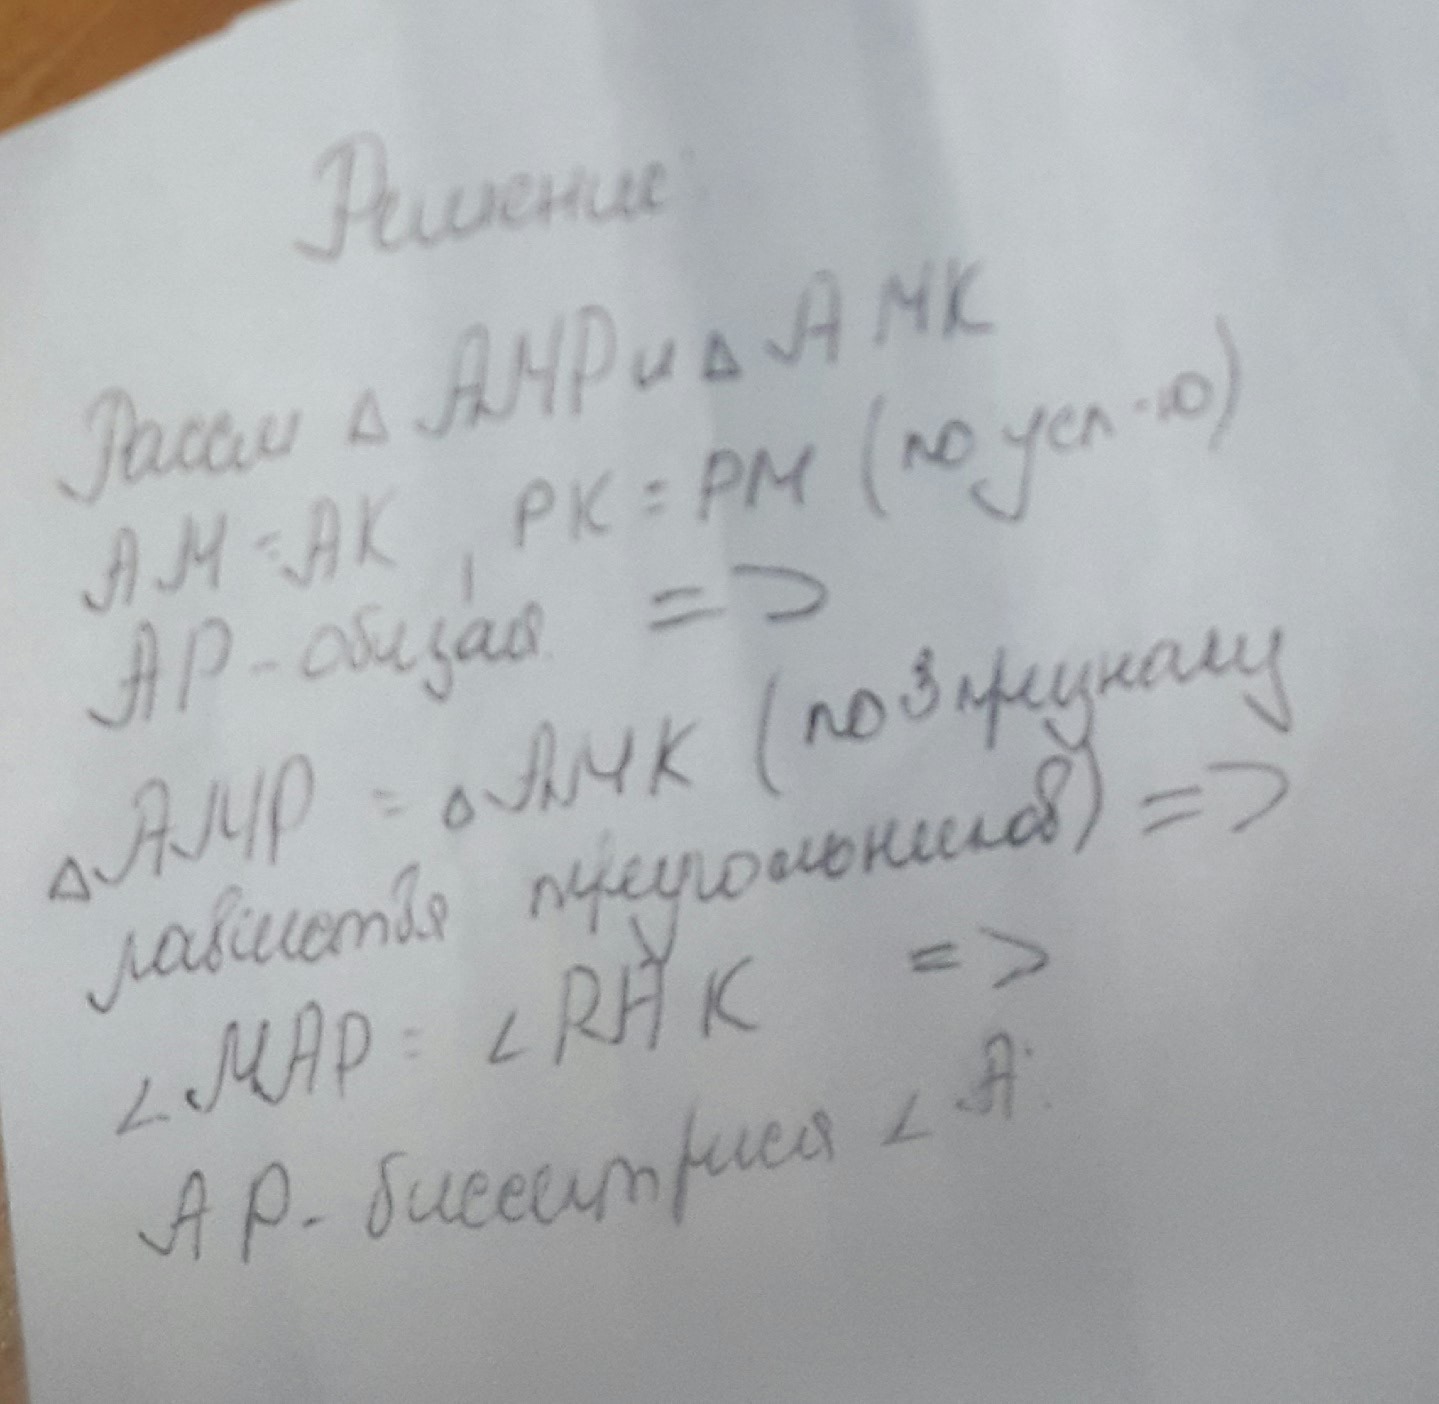 Решение:
Рассм △ AMP и △ AMK
AM = AK, PK = PM (по усл-ю)
AP - общая =>
△ AMP = △ AMK (по 3 признаку
равенства треугольников) =>
∠ MAP = ∠ PAK =>
AP - биссектриса ∠ A.